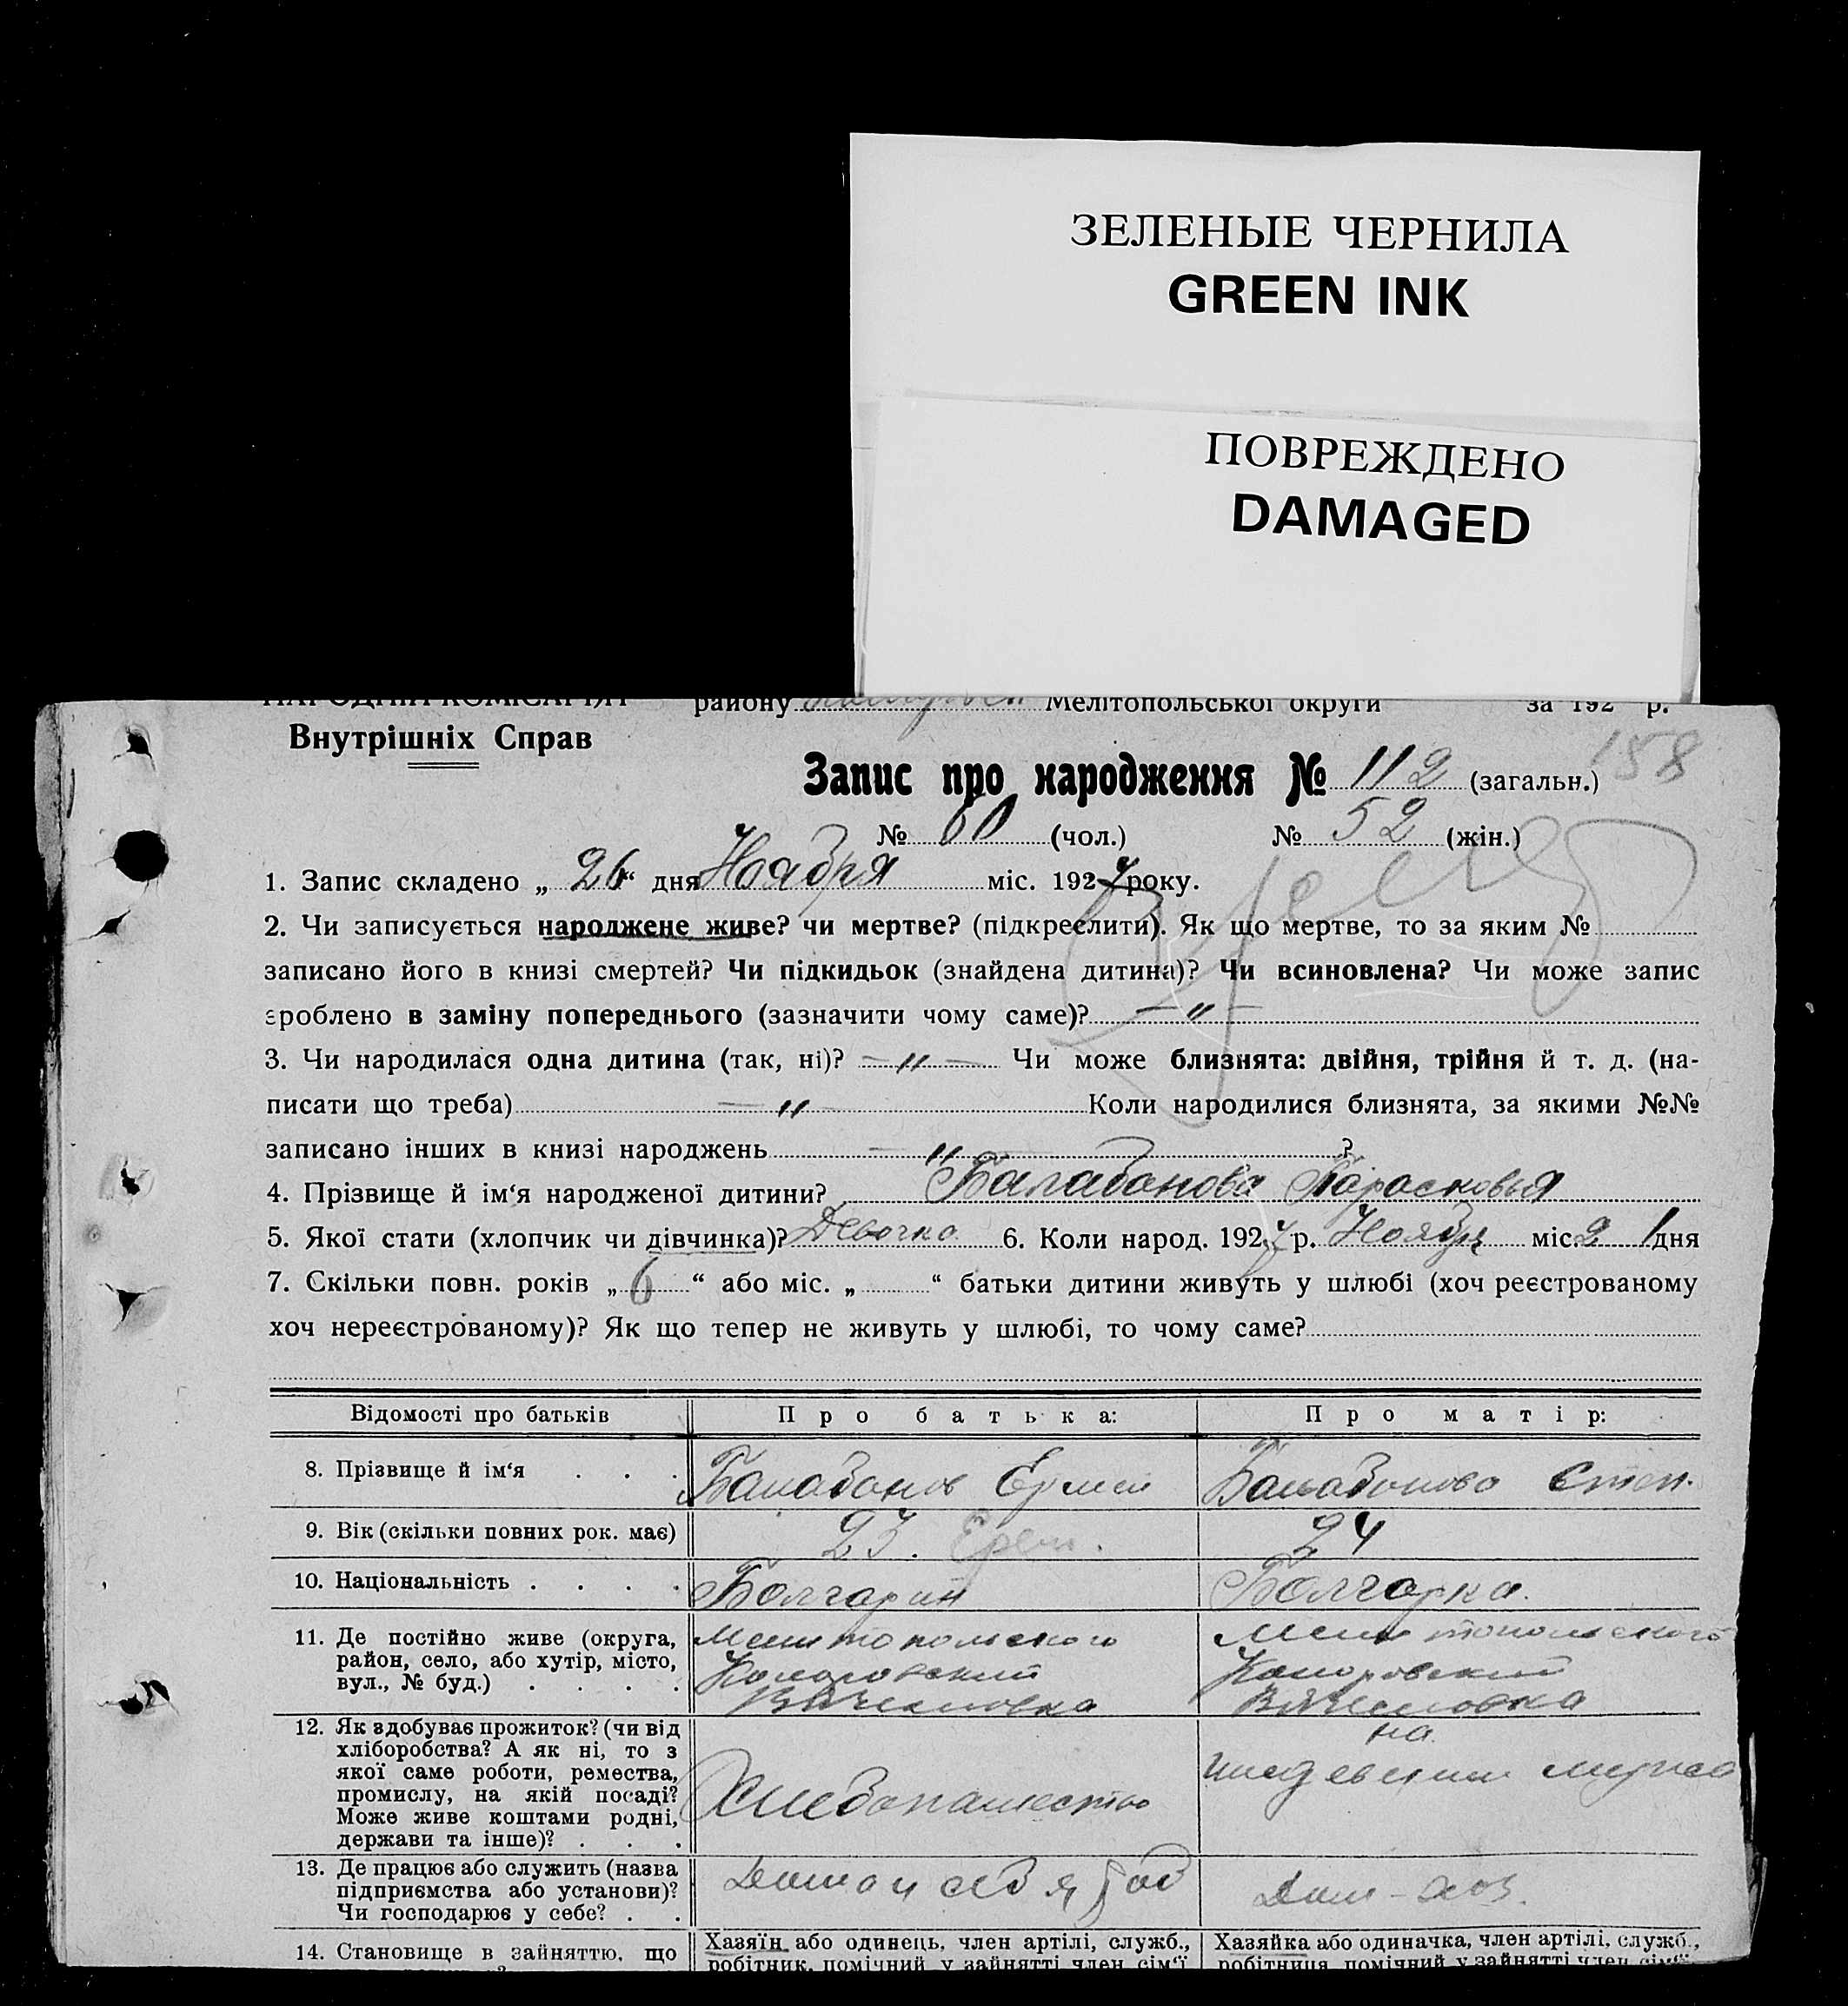 ЗЕЛЕНЫЕ ЧЕРНИЛА
GREEN INK
ПОВРЕЖДЕНО
DAMAGED
НАРОДНІЙ КОМІСАРІЯТ
району Мелітопольської округи за 192 р.
Внутрішніх Справ
158
Запис про народження № 112 (загальн.)
№ 60 (чол.) № 52 (жін.)
1. Запис складено „ 26 “ дня Ноября міс. 1927 року.
2. Чи записується народжене живе? чи мертве? (підкреслити). Як що мертве, то за яким №
записано його в книзі смертей? Чи підкидьок (знайдена дитина)? Чи всиновлена? Чи може запис
зроблено в заміну попереднього (зазначити чому саме)? — „ —
3. Чи народилася одна дитина (так, ні)? — „ — Чи може близнята: двійня, трійня й т. д. (на-
писати що треба) — „ — Коли народилися близнята, за якими №№
записано інших в книзі народжень — „ — ?
4. Прізвище й ім‘я народженої дитини? Балабанова Парасковья
5. Якої стати (хлопчик чи дівчинка)? Девочка 6. Коли народ. 1927 р. Ноября міс. 21 дня
7. Скільки повн. років „ 6 “ або міс. „ “ батьки дитини живуть у шлюбі (хоч реєстрованому
хоч нереєстрованому)? Як що тепер не живуть у шлюбі, то чому саме?
Відомості про батьків
Про батька:
Про матір:
8. Прізвище й ім‘я . . .
Балабанов Ермей
Балабанова Степ.
9. Вік (скільки повних рок. має)
23. Ерем.
24
10. Національність . . . .
Болгарин
Болгарка.
11. Де постійно живе (округа,
район, село, або хутір, місто,
вул., № буд.) . . . .
Мелитопольского
Коларовский
Вячеславка
Мелитопольского
Коларовский
Вячеславка
12. Як здобуває прожиток? (чи від
хліборобства? А як ні, то з
якої саме роботи, ремества,
промислу, на якій посаді?
Може живе коштами родні,
держави та інше)? . . .
Хлебопашество
на
иждевении мужа
13. Де працює або служить (назва
підприємства або установи)?
Чи господарює у себе? . .
Дома у себя
Дом-хоз.
14. Становище в зайняттю, що
Хазяїн або одинець, член артілі, служб.,
робітник, помічний у зайнятті член сім‘ї
Хазяйка або одиначка, член артілі, служб.,
робітниця, помічний у зайнятті член сім‘ї